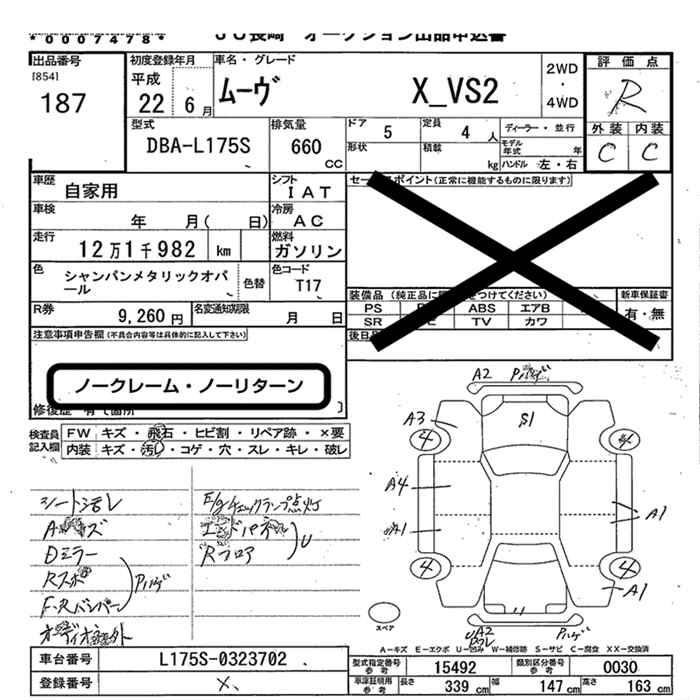 *0007478* JU長崎 オークション出品申込書
出品番号 初度登録年月 車名・グレード 評価点
[854] 平成 2WD
187 22 6月 ムーヴ X_VS2 ・ R
4WD
型式 排気量 ドア 5 定員 4人 ディーラー・並行 外装 内装
DBA-L175S 660 CC 形状 積載 kg モデル年式 年 C C
ハンドル 左・右
車歴 自家用 シフト IAT セールスポイント(正常に機能するものに限ります)
車検 年 月( 日) 冷房 AC
走行 12万1千982 km 燃料 ガソリン
色 シャンパンメタリックオパール 色替 色コード T17 装備品 (純正品に をつけてください) 新車保証書
PS ABS エアB 有・無
R券 9,260円 名変通知期限 月 日 SR TV カワ
注意事項申告欄(不具合内容等は具体的に記入して下さい) 後日
ノークレーム・ノーリターン
修復歴 有 て箇所
検査員 FW キズ・飛石・ヒビ割・リペア跡・×要
記入欄 内装 キズ・汚れ・コゲ・穴・スレ・キレ・破レ
シート汚レ E/gチェックランプ点灯
Aキズ エンドパネル
Dミラー Rフロア U
Rスポ
F・Rバンパー ハガレ
オーディオ社外
A2 ハガレ
S1
A3
4 4
A4
A1 A1
4 4
A1
スペア
U A2 ハガレ
A-キズ E-エクボ U-凹み W-補修跡 S-サビ C-腐食 XX-交換済
車台番号 L175S-0323702 型式指定番号 参考 15492 類別区分番号 参考 0030
登録番号 X 車庫証明用 参考 長さ 339 cm 幅 147 cm 高さ 163 cm